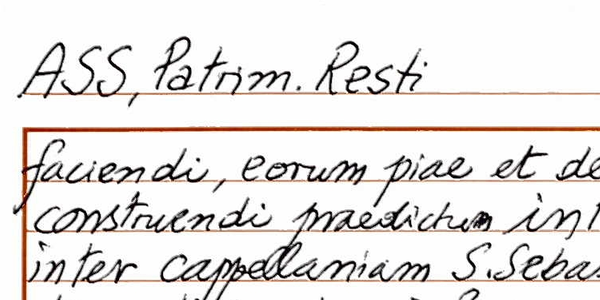 ASS, Patrim. Resti
faciendi, eorum piae et de
construendi praedictum int
inter cappellaniam S. Sebas